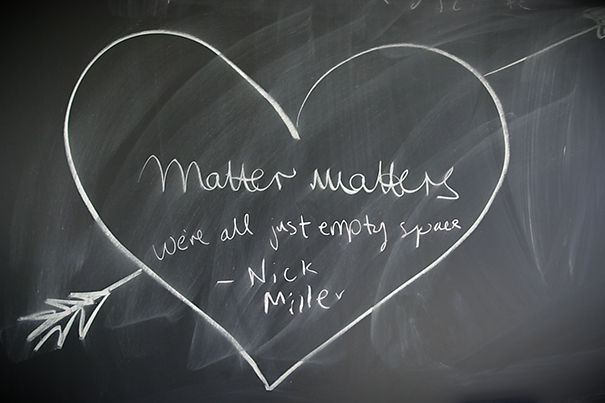 Matter matters
we're all just empty space
- Nick
Miller